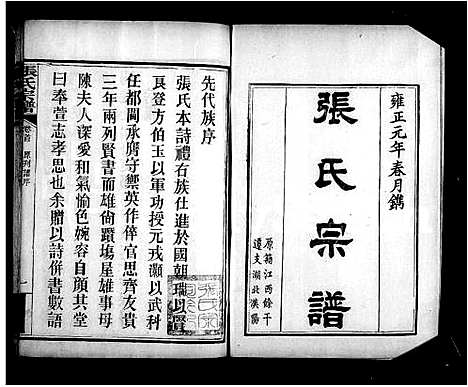 雍正元年春月鐫
張氏宗譜
原籍江西餘干
遷支湖北漢陽
先代族序
張氏本詩禮右族仕進於國朝瑞以賢
良登方伯玉以軍功授元戎灝以武科
任都閫承廣守禦英作倅官思齊友貴
三年兩列賢書而雄才蹭蹬塲屋雄事母
陳夫人深愛和氣愉色婉容自顏其堂
曰奉萱志孝思也余贈以詩併書數語
張氏宗譜
卷首
原列譜序
一